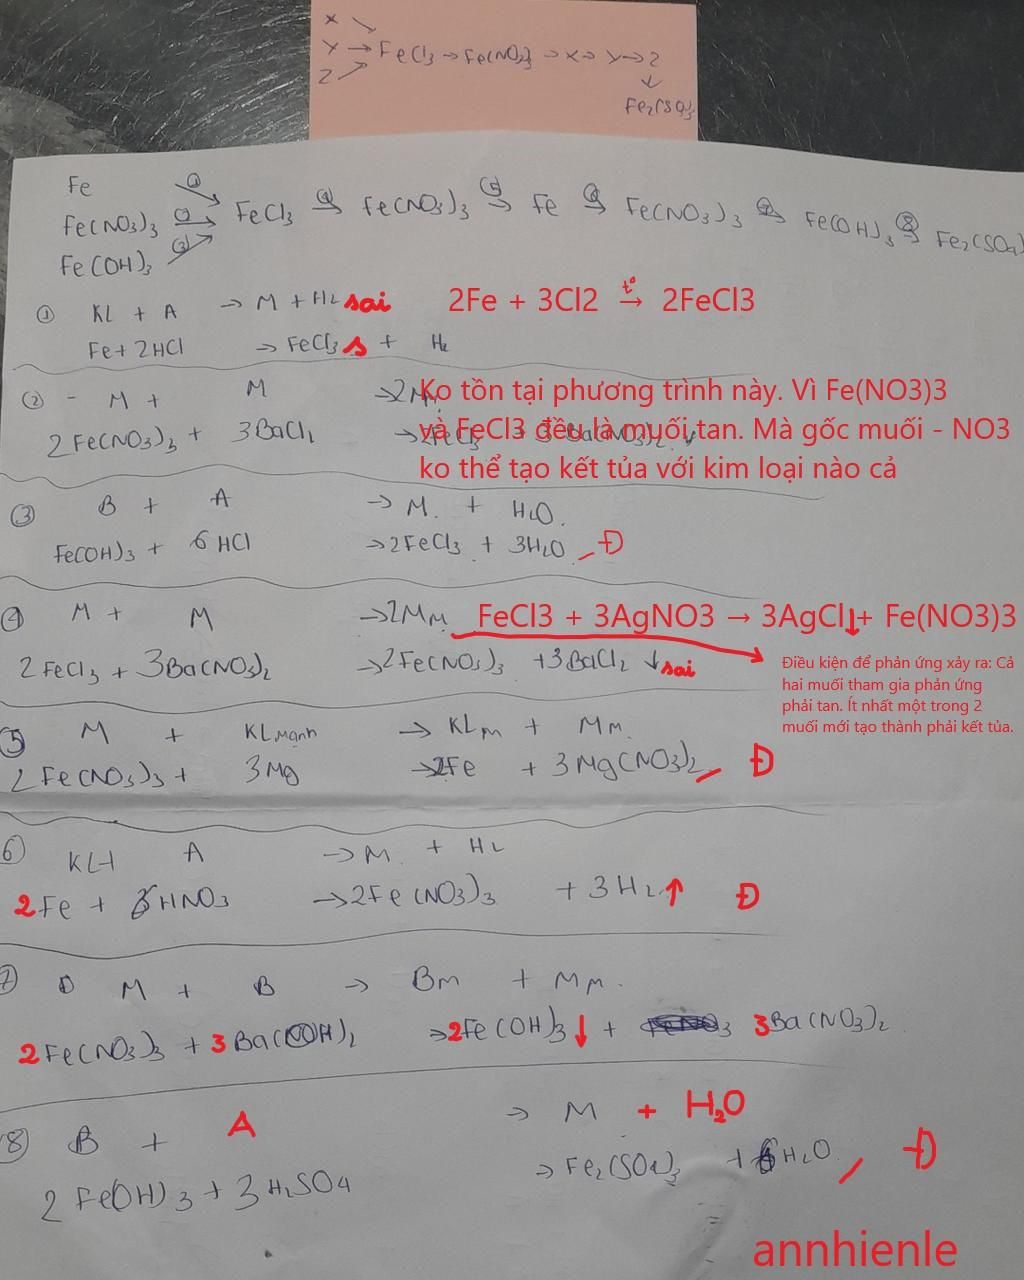 X
Y → FeCl3 → Fe(NO3)3 → X → Y → Z
Z
↓
Fe2(SO4)3
Fe
Fe(NO3)3
Fe(OH)3
① ② ③ → FeCl3 ④→ Fe(NO3)3 ⑤→ Fe ⑥→ Fe(NO3)3 ⑦→ Fe(OH)3 ⑧→ Fe2(SO4)
① KL + A → M + H2 sai 2Fe + 3Cl2 t° → 2FeCl3
Fe + 2HCl → FeCl3 s + H2
② - M + M → 2Mm Ko tồn tại phương trình này. Vì Fe(NO3)3
2Fe(NO3)3 + 3BaCl2 → 2FeCl3 + 3Ba(NO3)2 ↓ và FeCl3 đều là muối tan. Mà gốc muối - NO3
ko thể tạo kết tủa với kim loại nào cả
③ B + A → M + H2O.
Fe(OH)3 + 6HCl → 2FeCl3 + 3H2O Đ
④ M + M → 2Mm FeCl3 + 3AgNO3 → 3AgCl↓ + Fe(NO3)3
2FeCl3 + 3Ba(NO3)2 → 2Fe(NO3)3 + 3BaCl2 ↓ sai
Điều kiện để phản ứng xảy ra: Cả
hai muối tham gia phản ứng
phải tan. Ít nhất một trong 2
muối mới tạo thành phải kết tủa.
⑤ M + KLmạnh → KLm + Mm
2Fe(NO3)3 + 3Mg → 2Fe + 3Mg(NO3)2 Đ
⑥ KL + A → M + H2
2Fe + 6HNO3 → 2Fe(NO3)3 + 3H2↑ Đ
⑦ M + B → Bm + Mm.
2Fe(NO3)3 + 3Ba(OH)2 → 2Fe(OH)3↓ + 3Ba(NO3)2
⑧ B + A → M + H2O
2Fe(OH)3 + 3H2SO4 → Fe2(SO4)3 + 6H2O Đ
annhienle